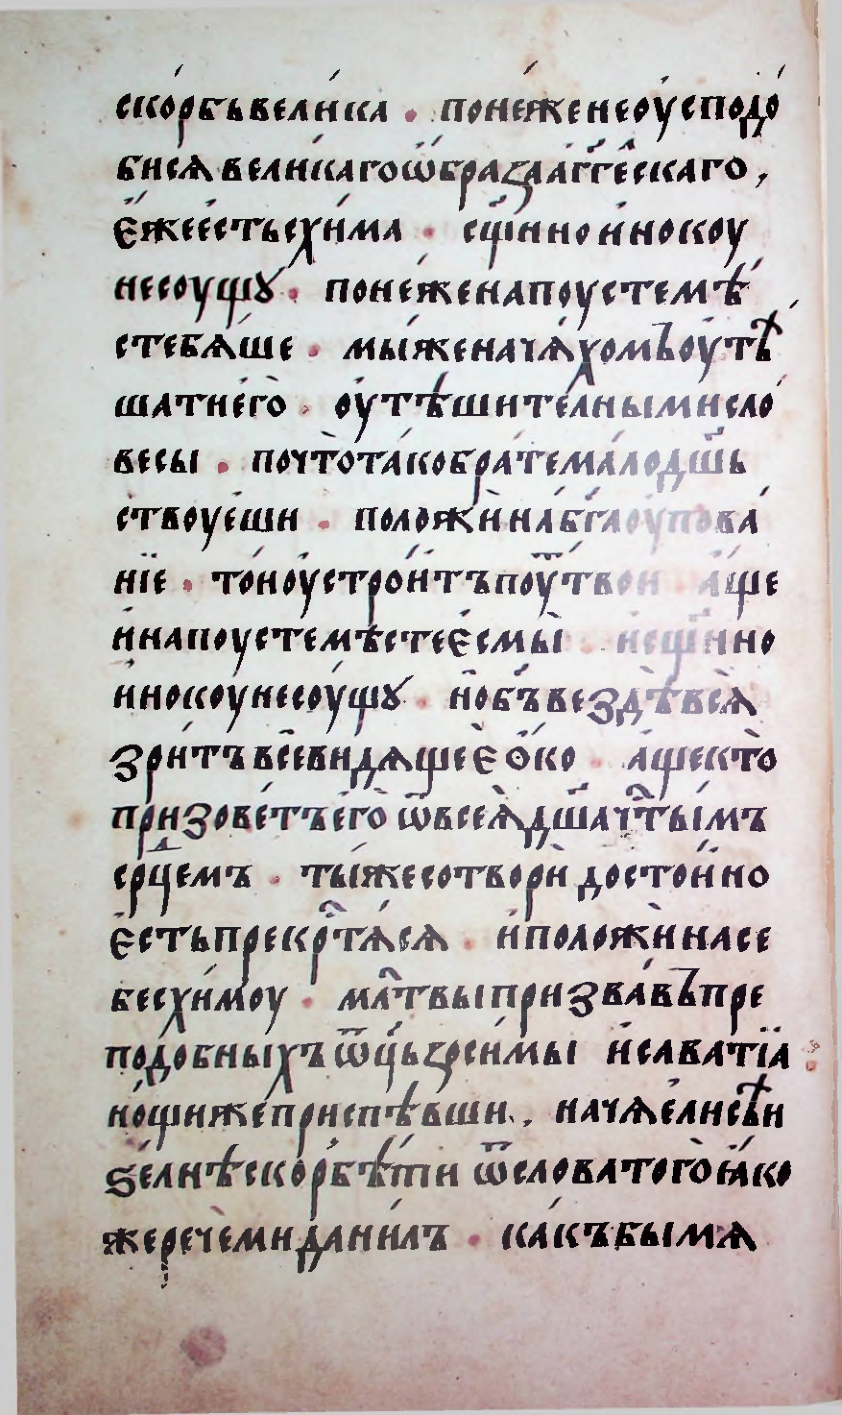 ско́рбь вели́ка . поне́же не оу҆сподо́
бисѧ вели́каго ѻ҆́браза а҆́гг҃е́скаго ,
є҆́же е҆́сть схи́ма . сщ҃і́нно и҆́нокоу
не соущꙋ̀ . поне́же на поустемѣ́
сте бѧ́ше . мы́ же нача́хомъ оу҆тѣ́
шати е҆го̀ . оу҆тѣши́телными сло́
весы . почто̀ та́ко бра́те мало дш҃ь
ствоуеши . положѝ на бг҃а оу҆пова́
нїе . то́и оу҆строи́тъ поу́ть твои . а҆́ще
и҆ на поустемѣсте є҆смы̀ . и҆ сщ҃і́нно
и҆ноку не соу́щꙋ . но бг҃ъ вездѣ̀ всѧ̀
зри́тъ всевидѧщее є҆ ѻ҆́ко . а҆́ще кто̀
призове́тъ е҆го̀ ѿ всеѧ̀ дш҃а чⷭ҇ты́мъ
срⷣцемъ . ты́ же сотворѝ досто́йно
є҆́сть прекрⷭ҇тѧ́сѧ . и҆ положѝ на се
бе схи́моу . млⷭ҇твы призва́въ пре
подо́бныхъ ѻ҆ц҃ь зоси́мы и҆ савати́а
но́щи же приспѣвши , нача ели сѣи
ѕе́лнѣ скорбѣ́ти ѿ слова того̀ ꙗ҆́ко
же речѐ ми дани́лъ . ка́къ бы мѧ